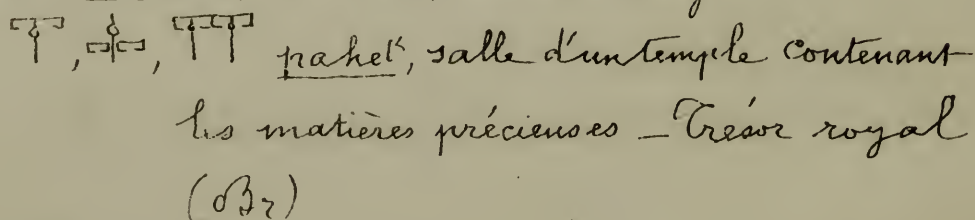 𓉐𓌉, 𓌉𓉐, 𓌉𓌉 pahet', salle d'un temple contenant
les matières précieuses _ Trésor royal
(Br)